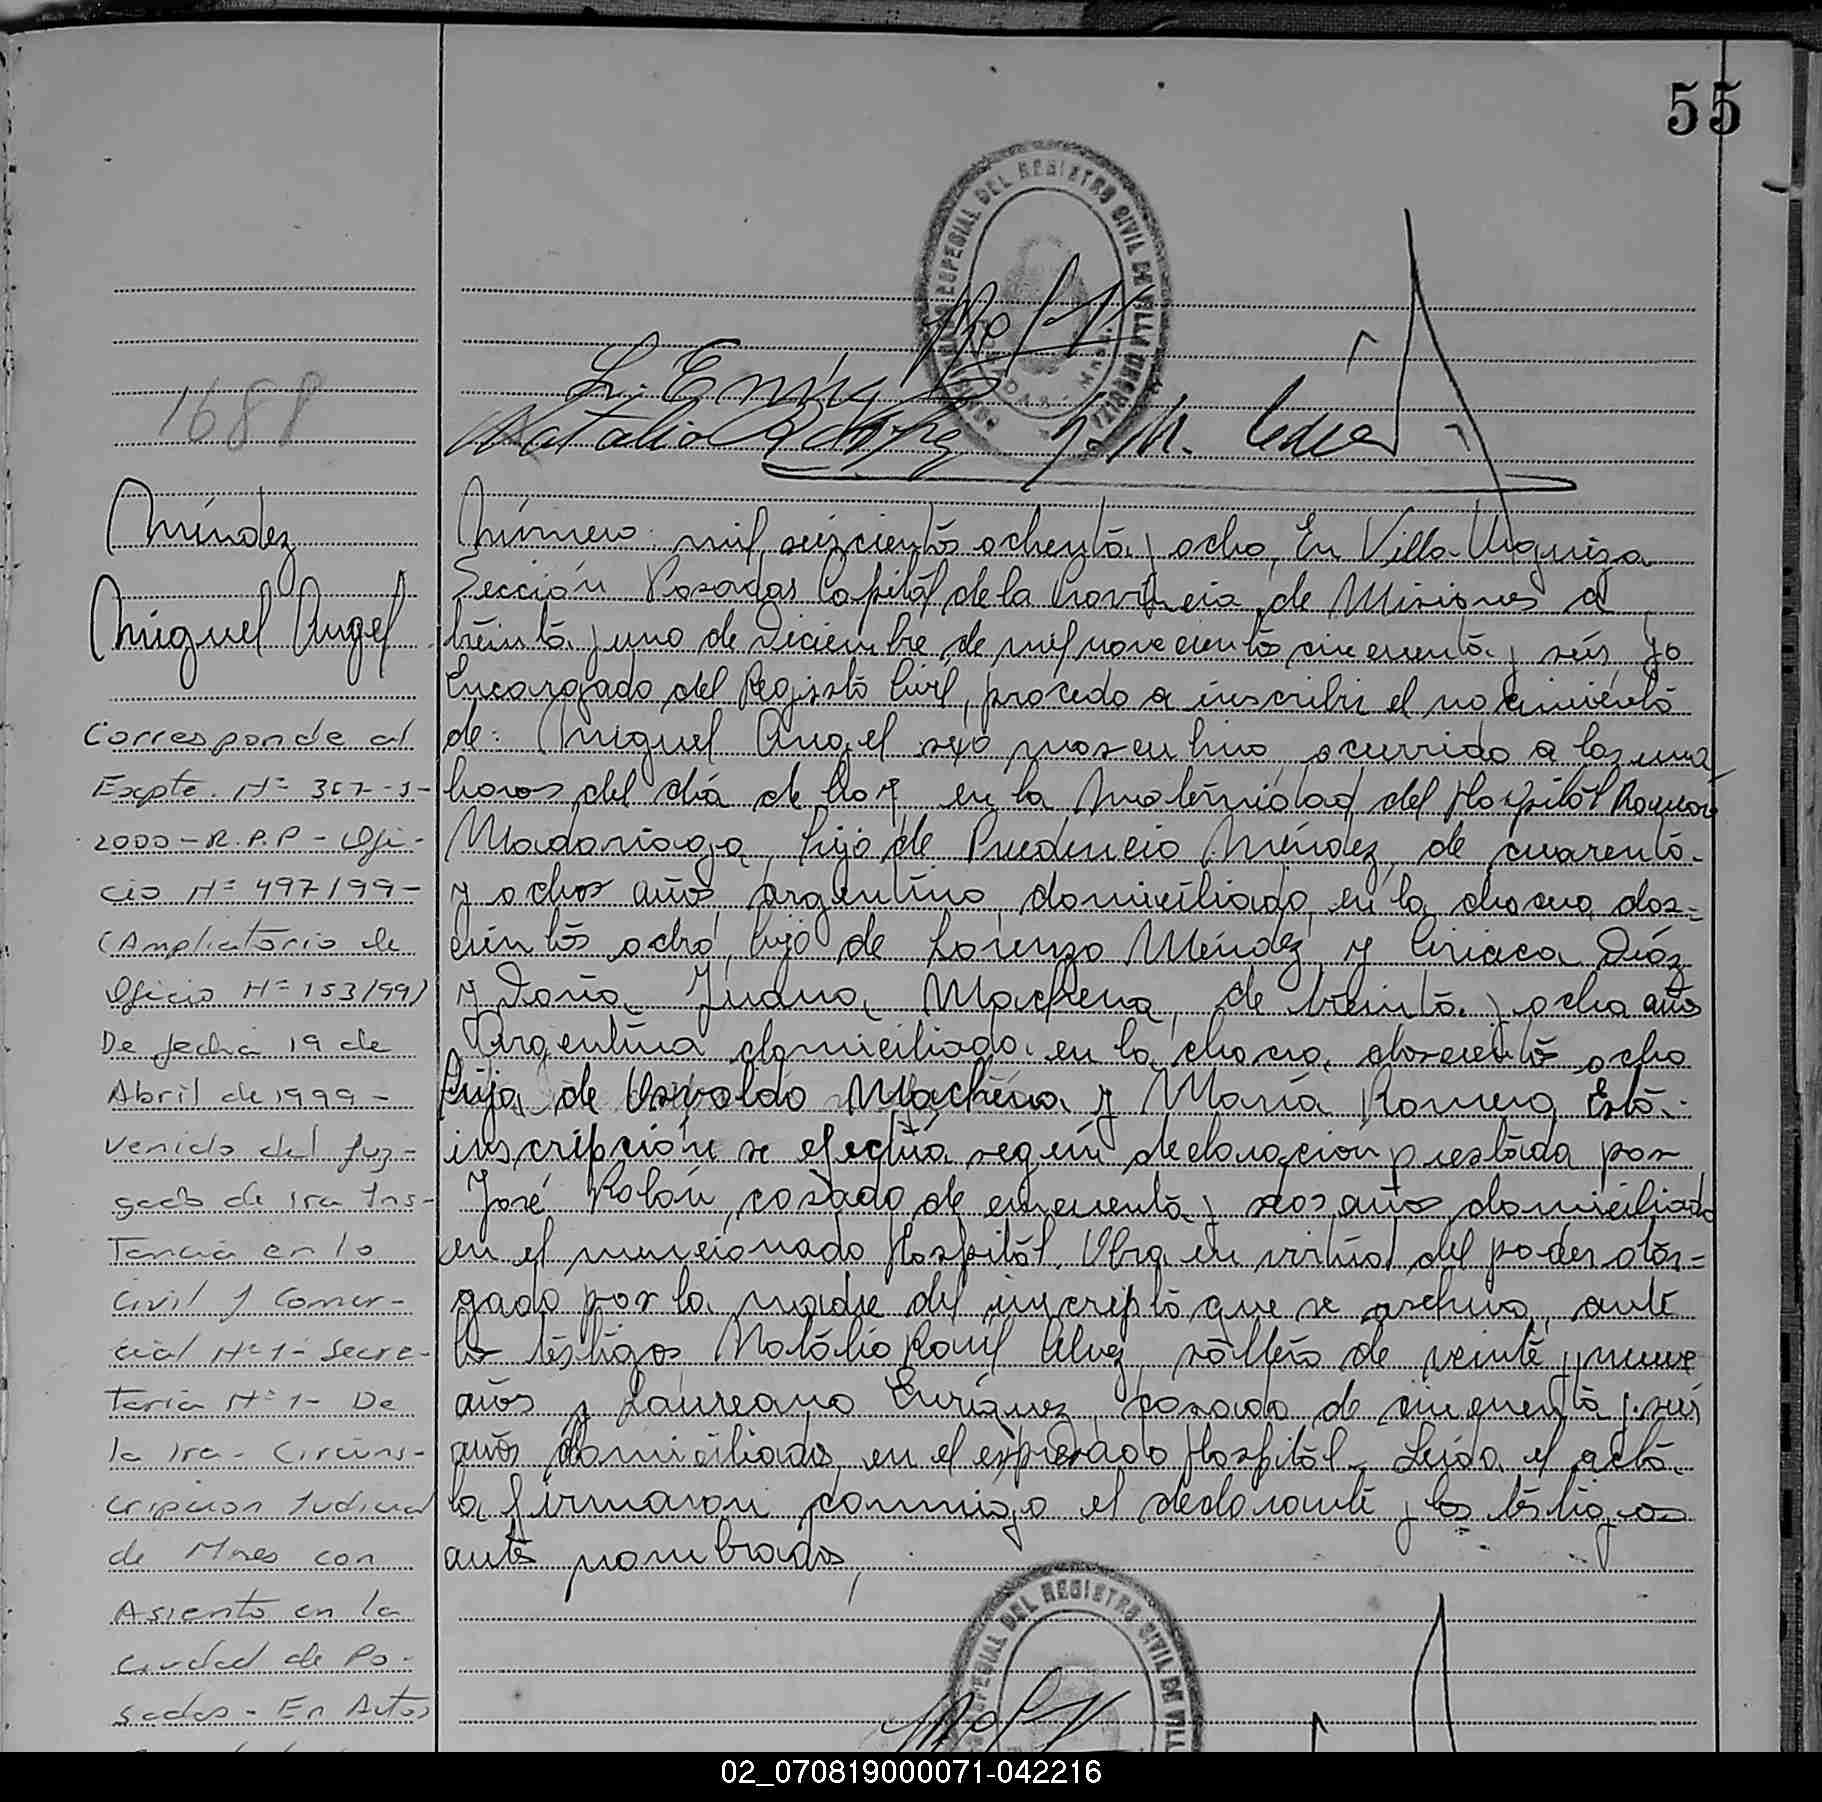 55
REGISTRO CIVIL DE VILLA URQUIZA
L. Enríquez
1688
Méndez
Miguel Angel
Corresponde al
Expte. Nº 357-S-
2000-R.P.P - Ofi-
cio Nº 497/99-
(Ampliatorio de
Oficio Nº 153/99)
De fecha 19 de
Abril de 1999-
venido del Juz-
gado de 1ra Ins-
Tancia en lo
Civil y Comer-
cial Nº 1- Secre-
Taria Nº 1- De
la 1ra- Circuns-
cripcion Judicial
de Mnes con
Asiento en la
ciudad de Po-
sadas- En Autos
Número: mil seiscientos ochenta y ocho, En Villa Urquiza
Sección Posadas Capital de la Provincia de Misiones a
treinta y uno de Diciembre de mil novecientos cincuenta y seis, Yo
Encargado del Registro Civil, procedo a inscribir el nacimiento
de: Miguel Angel sexo masculino ocurrido a las una
horas del día de hoy en la Maternidad del Hospital Ramón
Madariaga, hijo de Prudencio Méndez, de cuarenta
y ochos años, argentino, domiciliado en la chacra dos=
cientos ocho, hijo de Lorenzo Méndez y Ciriaca Diáz
y Doña Juana Machena, de treinta y ocho años
Argentina domiciliada en la chacra doscientos ocho
hija de Osvaldo Machena y María Romero Esta
inscripción se efectúa según declaración prestada por
José Rolón, casado de cincuenta y dos años domiciliado
en el mencionado Hospital. Obra en virtud del poder otor=
gado por la madre del inscripto que se archiva, ante
los testigos Natalio Raúl Alvez, soltero de veinte y nueve
años y Laureano Enríquez, casado de cincuenta y seis
años domiciliados en el expresado Hospital. Leída el acta
la firmaron conmigo el declarante y los testigos
antes nombrados,
REGISTRO CIVIL DE VILL
02_070819000071-042216